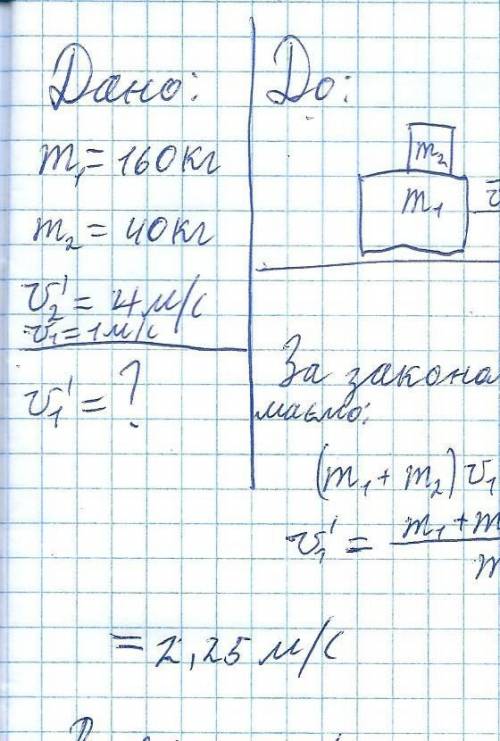 Дано:
m₁ = 160кг
m₂ = 40кг
v₂' = 4 м/с
v₁ = 1 м/с
v₁' = ?
До:
m₂
m₁
v̄
За закона
маємо:
(m₁ + m₂) v₁
v₁' = m₁ + m
m
= 2,25 м/с